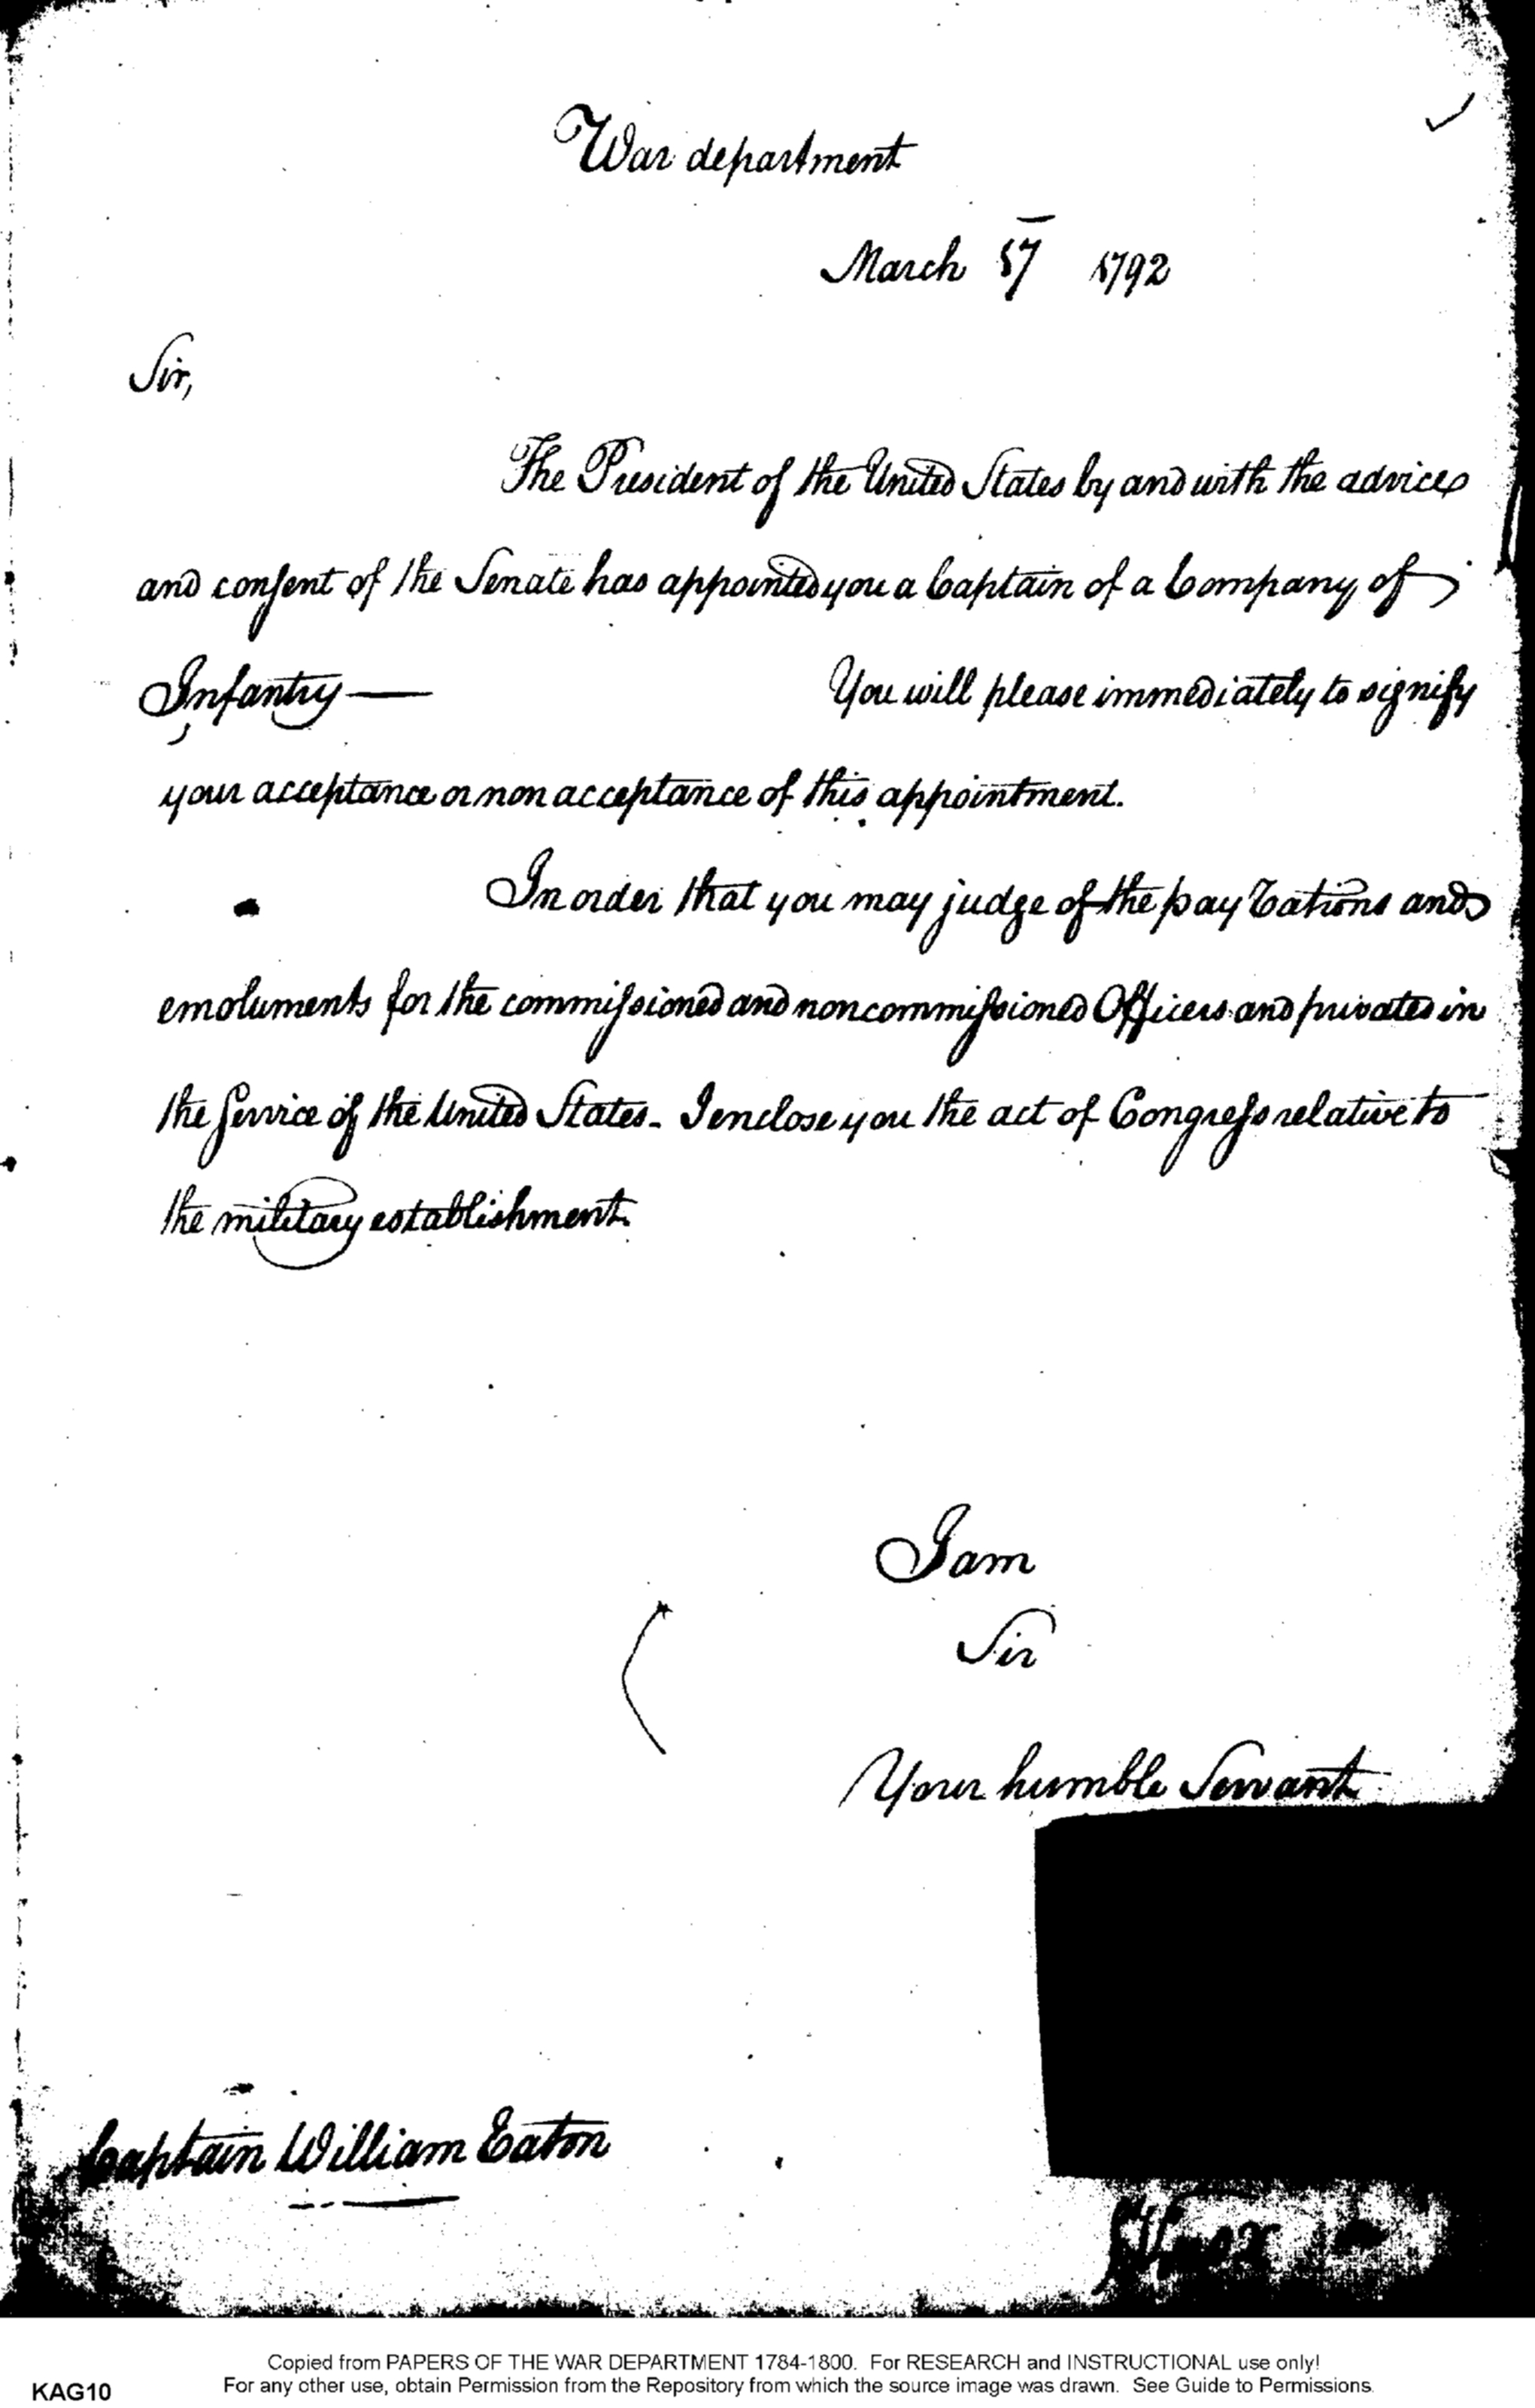 War department
March 17 1792
Sir,
The President of the United States by and with the advice
and consent of the Senate has appointed you a Captain of a Company of
Infantry — You will please immediately to signify
your acceptance or non acceptance of this appointment.
In order that you may judge of the pay rations and
emoluments for the commissioned and noncommissioned Officers and privates in
the Service of the United States - I enclose you the act of Congress relative to
the military establishment.
I am
Sir
Your humble Servant
Captain William Eaton
HKnox
Copied from PAPERS OF THE WAR DEPARTMENT 1784-1800. For RESEARCH and INSTRUCTIONAL use only!
KAG10 For any other use, obtain Permission from the Repository from which the source image was drawn. See Guide to Permissions.